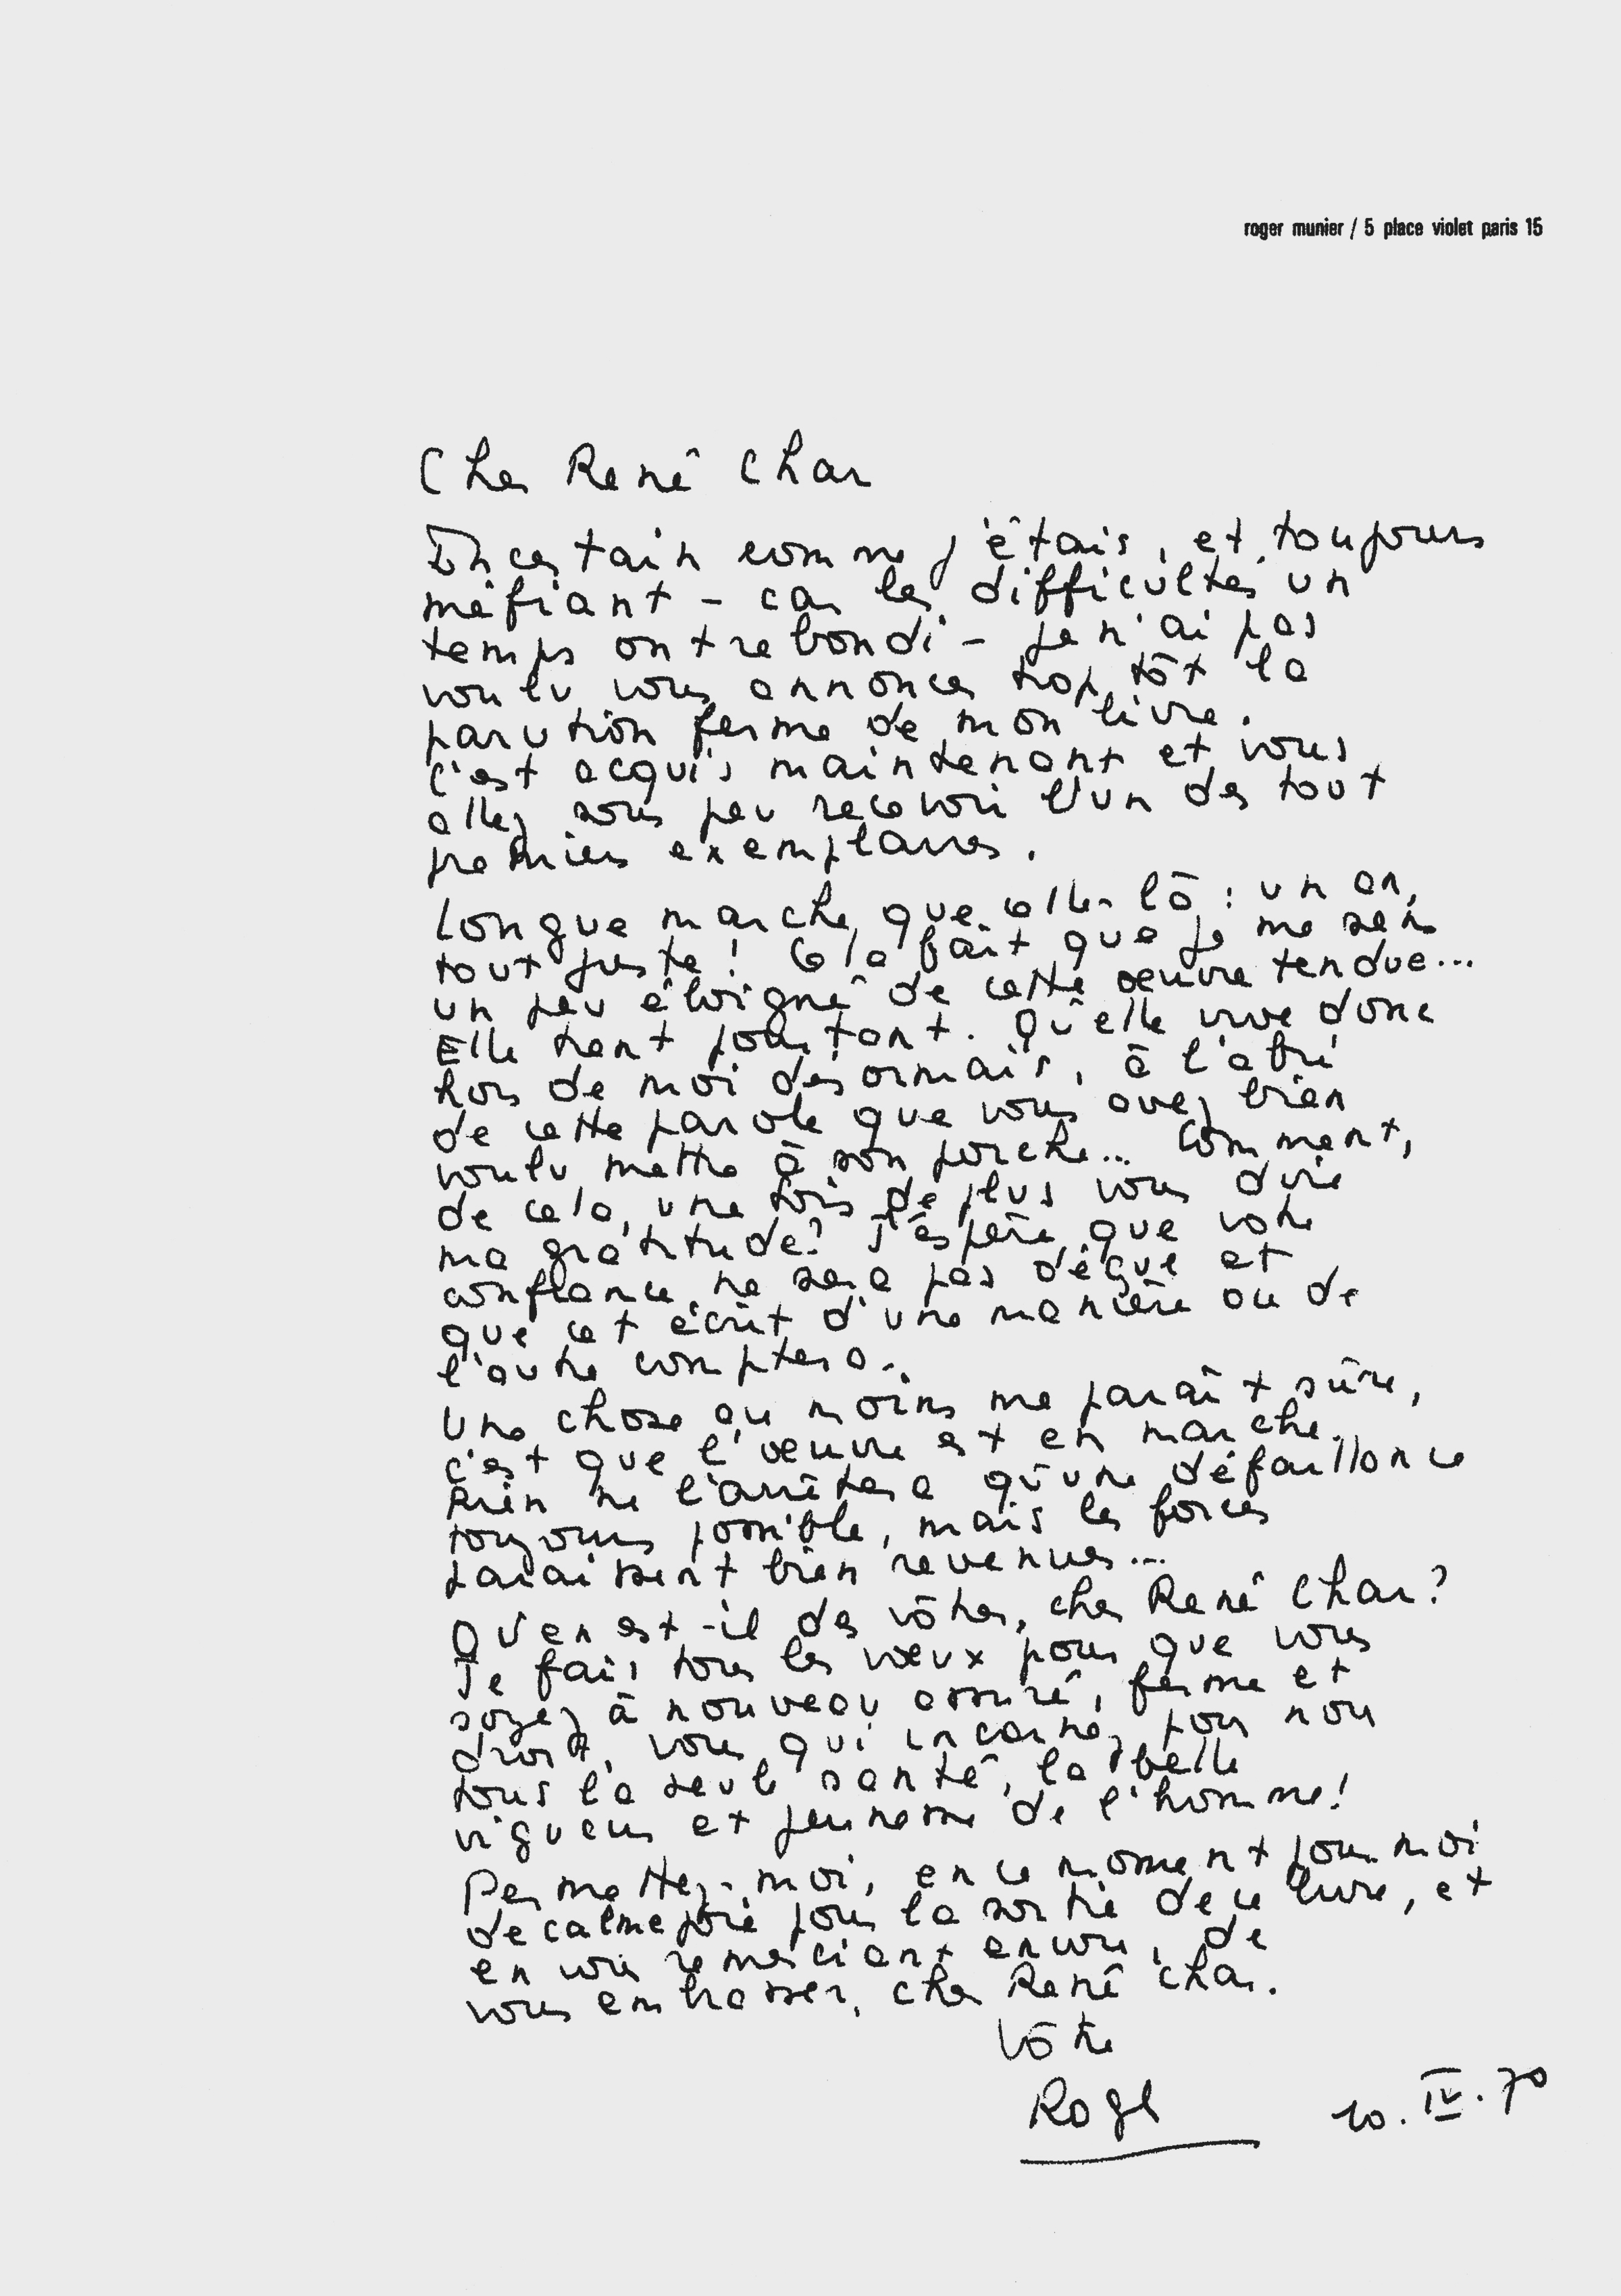 roger munier / 5 place violet paris 15
Cher René Char
Incertain comme j'étais, et toujours
méfiant – car les difficultés un
temps ont rebondi – je n'ai pas
voulu vous annoncer trop tôt la
parution ferme de mon livre.
C'est acquis maintenant et vous
allez sous peu recevoir l'un des tout
premiers exemplaires.
Longue marche que celle-là : un an,
tout juste ! Cela fait que je me sens
un peu éloigné de cette œuvre tendue...
Elle tient pourtant. Qu'elle vive donc
hors de moi désormais, à l'abri
de cette parole que vous avez bien
voulu mettre à son porche... Comment,
de cela, une fois de plus vous dire
ma gratitude? J'espère que votre
confiance ne sera pas déçue et
que cet écrit d'une manière ou de
l'autre comptera.
Une chose au moins me paraît sûre,
c'est que l'œuvre est en marche.
Rien ne l'arrêtera qu'une défaillance
toujours possible, mais les forces
paraissent bien revenues...
Qu'en est-il des vôtres, cher René Char?
Je fais tous les vœux pour que vous
soyez à nouveau assuré, ferme et
droit, vous qui incarnez pour nous
tous la seule santé, la belle
vigueur et jeunesse de l'homme!
Permettez-moi, en ce moment pour moi
de calme joie pour la sortie de ce livre, et
en vous remerciant encore, de
vous embrasser, cher René Char.
Vôtre
Roger
10.IV.70